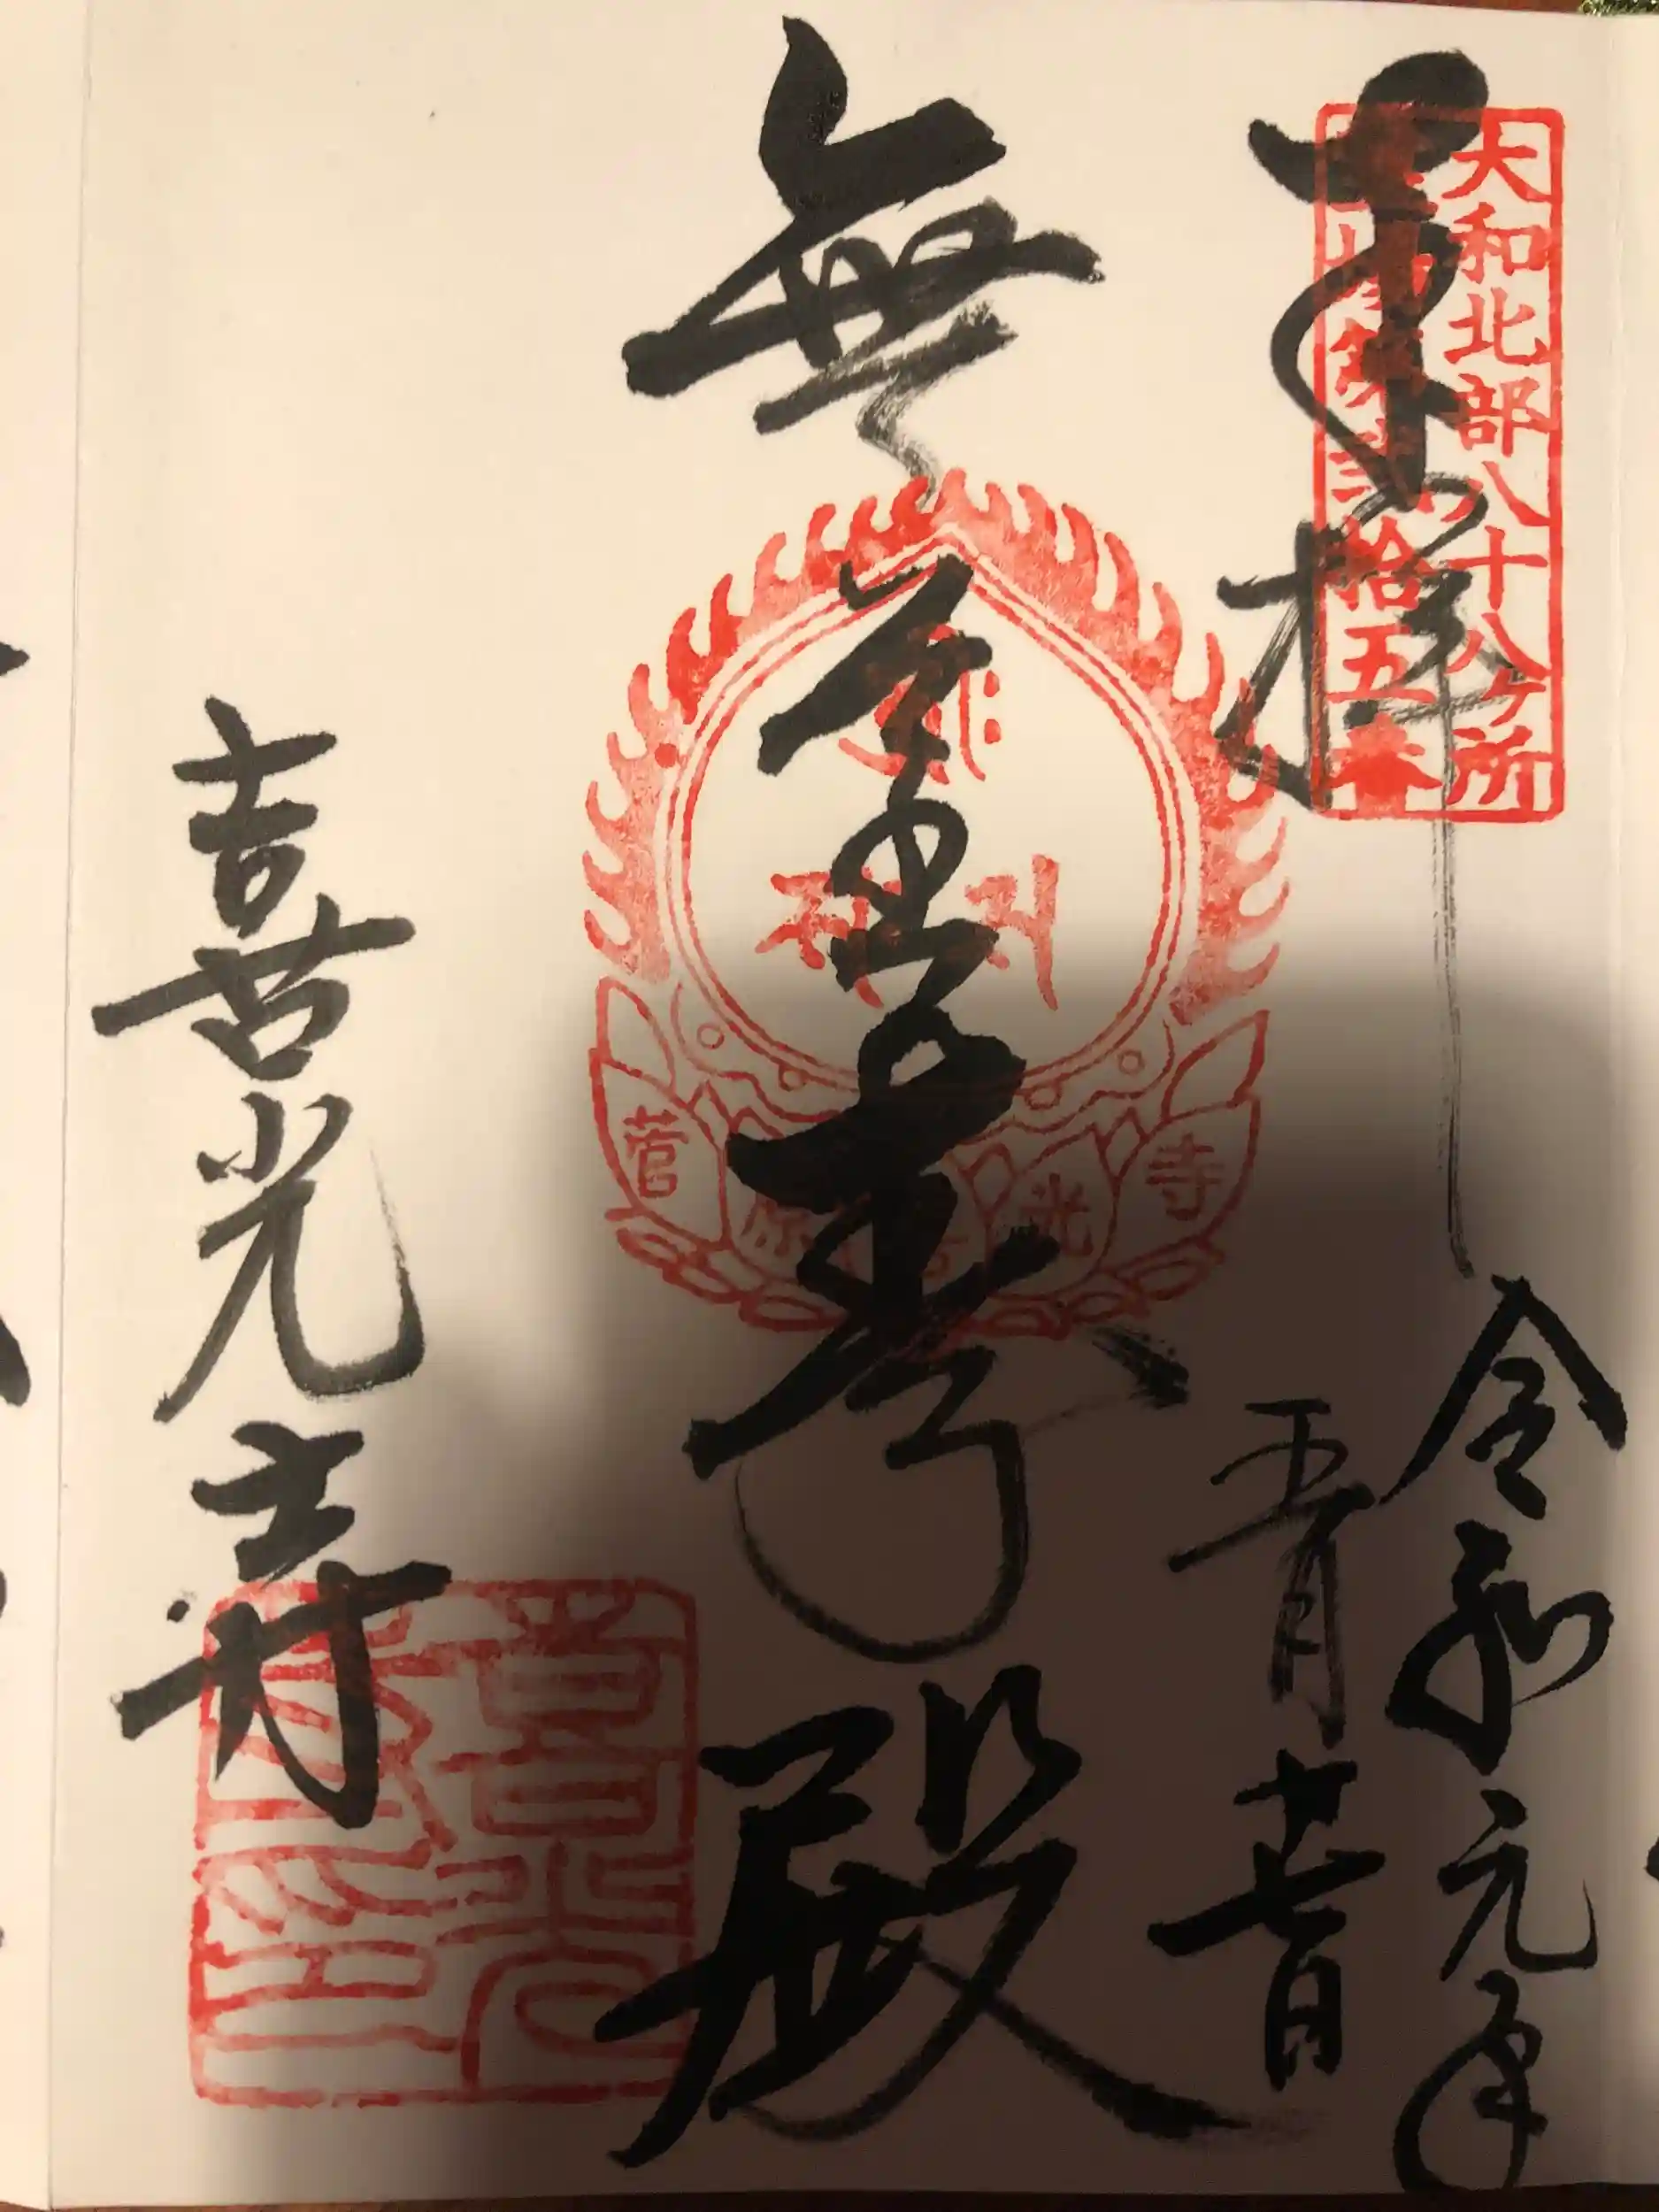 大和北部八十八ヶ所
拾五番
奉拝
令和元年
五月
無量寿殿
菅原喜光寺
喜光寺
喜光寺印